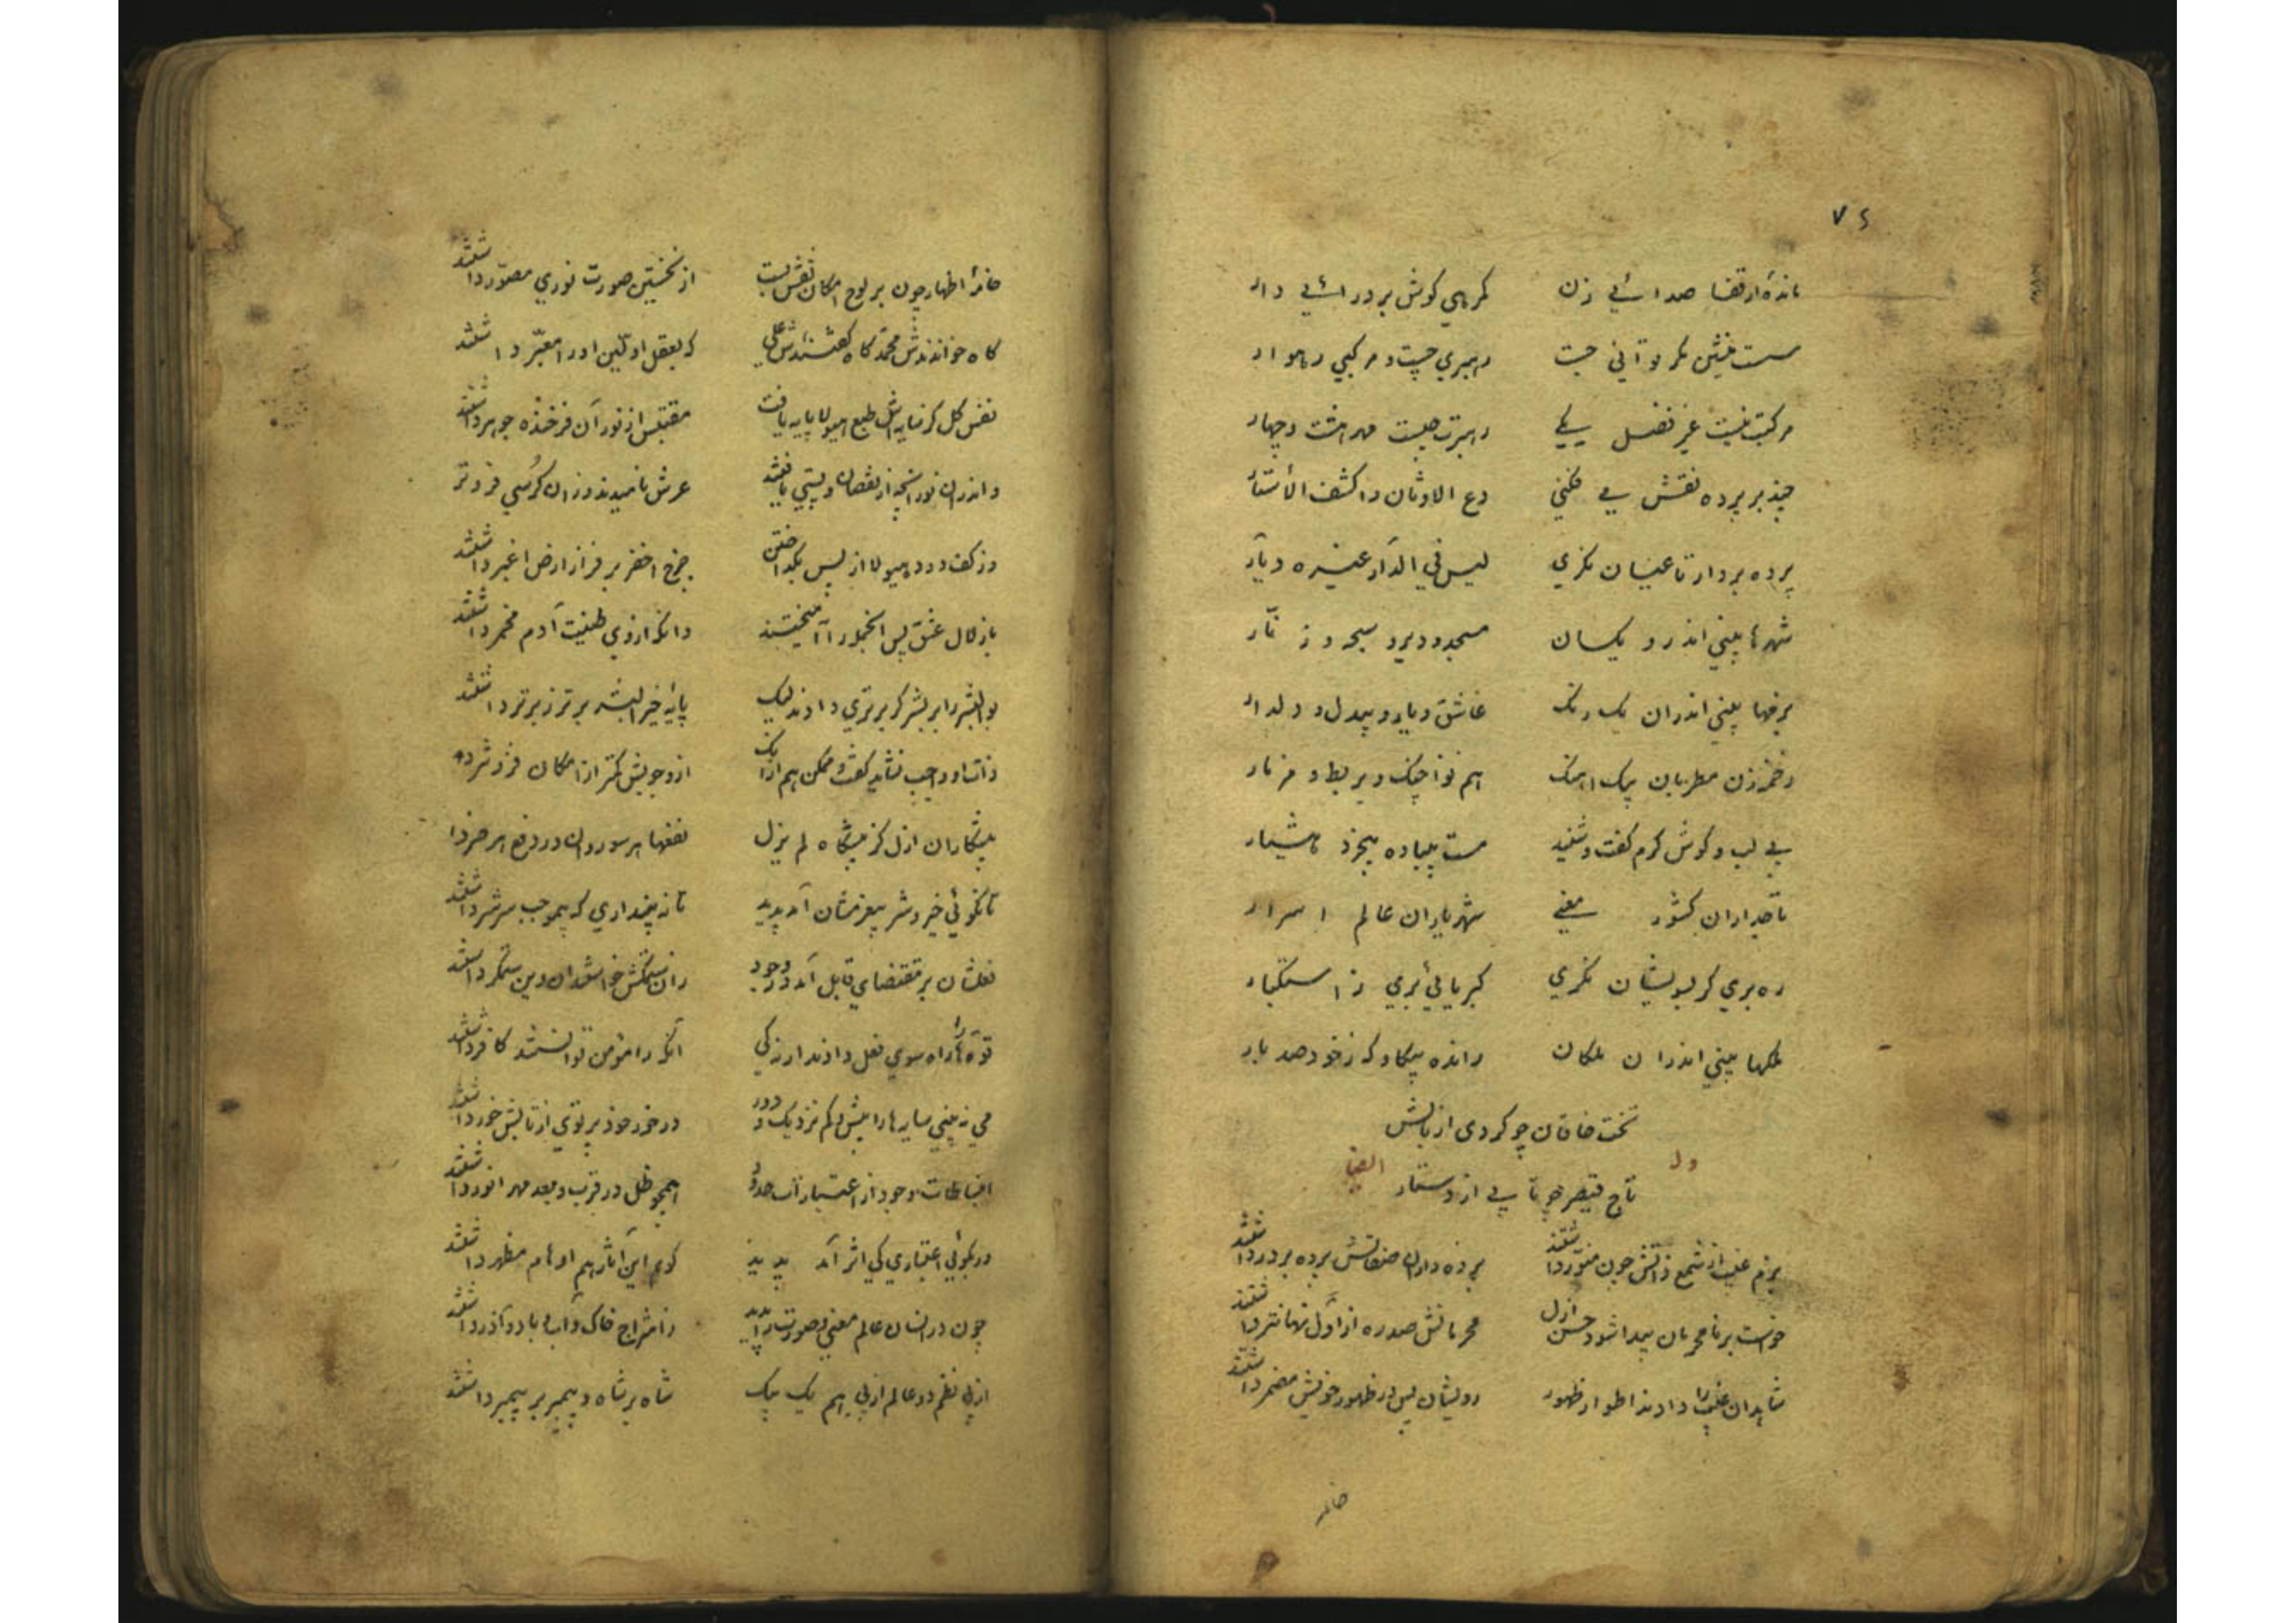 ۷۴
مانده از قفا صدائی زن کر بهی کوش بر درائی دار
سست منشین مکر توآنی جست رهبری جست و مرکبی رهوار
مرکبت نیست غیر فضل یکی رهبرت چیست مهر هشت و چهار
چند بر پرده نقش می فکنی دع الاوثان واکشف الأستار
پرده بردار تا عیان نکری لیس فی الدار غیره دیار
شهرها بینی اندرو یکسان مسجد و دیر و سبحه و زنّار
برقها بینی اندران یک رنک عاشق و یار و بیدل و دلدار
زخمه زن مطربان یک اهنک هم نوا چنک و بربط و مزمار
بی لب و کوش کرم کفت و شنید مست بیباده بیخرد هشیار
تاجداران کشور معنی شهریاران عالم اسرار
ره بری کر بسویشان نکری کبریائی بری ز استکبار
ملکها بینی اندران ملکان رانده بیکاوکه ز خود صد بار
تخت خاقان چو کردی از بالش
وله ایضا
تاج قیصر چو تا بی از دستار
بزم غیب از شمع ذاتش چون منور داشتند پرده داران صفاتش پرده بر در داشتند
خواست بر نامحرمان پیدا شود حسن ازل محرمانش صد ره از اول نهانتر داشتند
شاهدان غیب را دادند اطوار ظهور رویشان لیس در ظهور خویش مضمر داشتند
خامه
خامهٔ اظهار چون بر لوح امکان نقش بست از نخستین صورت نوری مصوّر داشتند
کاه خواندندش محمد کاه کفتندش علی که بعقل اولین او را معبّر داشتند
نفس کل کز مایه اش طبع هیولا پایه یافت مقتبس از نور آن فرخنده جوهر داشتند
و اندران نور انچه از نقصان و پستی یافتند عرش نامیدند و زان کرسی فروتر
وز کف و دود هیولا از پس بکداختن چرخ اخضر بر فراز ارض اغبر داشتند
باز لال عشق پس انجمله را آمیختند وانکه از وی طینت آدم مخمر داشتند
بوالبشر را بر بشر کر برتری دادند لیک پایهٔ خیرالبشر برتر ز برتر داشتند
ذات او واجب نشاید کفت و ممکن هم از آنک از وجوبش کمتر از امکان فزونتر
پیشکاران ازل کز پیشکاه لم یزل نفعها هر سو روان در دفع هر ضر داشتند
تا نکوئی خیر و شر بیغرضشان آمد پدید تا نه پنداری که بیموجب سر شر داشتند
فعلشان بر مقتضای قابل آمد در وجود زان ستمکش خواستند آن وین ستمکر داشتند
قوّه ها را راه سوی فعل دادند ار نه کی آنکه را مؤمن توانستند کافر داشتند
می نه بینی سایه ها را بیش و کم نزدیک و دور در خور خود پرتوی از تابش خور داشتند
انبساطات وجود از اعتبار آمد حدود همچو ظل در قرب و بعد مهر انور داشتند
ور بکوئی اعتباری کی اثر آمد پدید کویم این آثار هم اوهام مظهر داشتند
چون در انسان عالم معنی و صورت شد پدید ز امتزاج خاک و آب و باد و آذر داشتند
از پی نظم دو عالم از پی هم یک بیک شاه بر شاه و پیمبر بر پیمبر داشتند